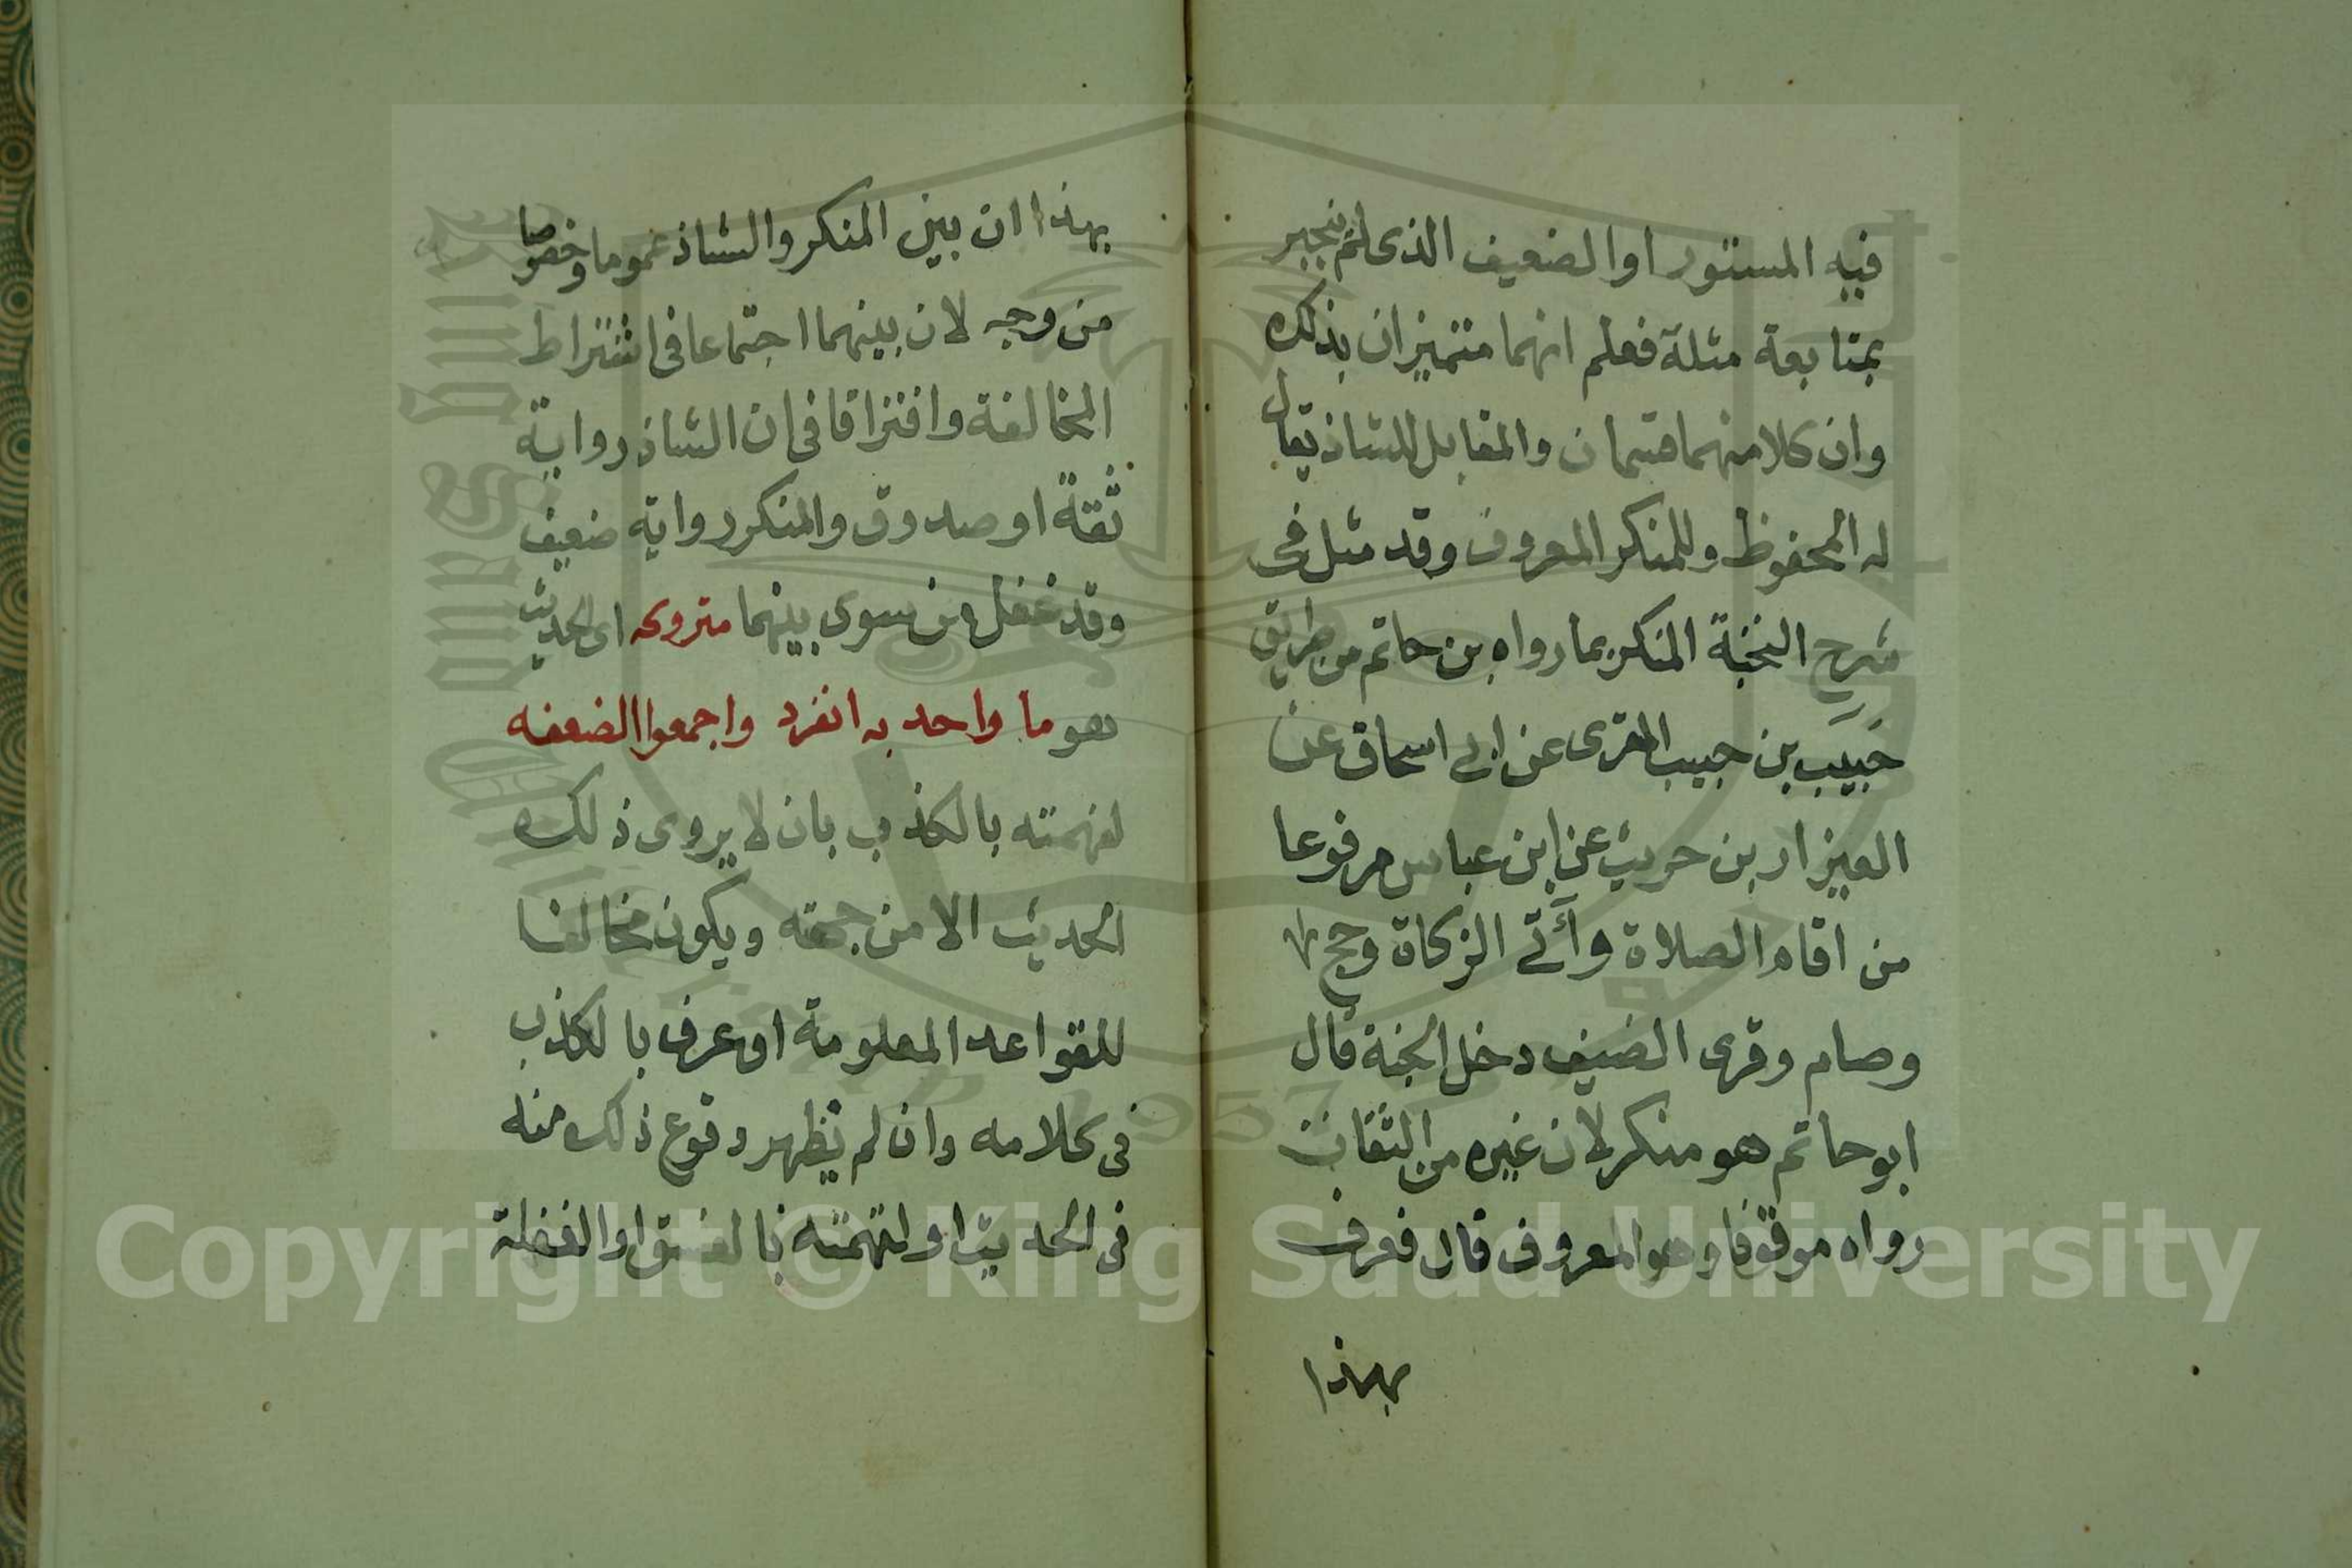 فيه المستور او الضعيف الذى لم ينجبر
بمتابعة مثله فعلم انهما متميزان بذلك
وان كلا منهما قسمان والمقابل للشاذ يقال
له المحفوظ وللمنكر المعروف وقد مثل فى
شرح النخبة المنكر بما رواه بن حاتم من طريق
حبيب بن حبيب المقرى عن ابى اسحاق عن
العيزار بن حريث عن ابن عباس مرفوعا
من اقام الصلاة وآتى الزكاة وحج
وصام وقرى الضيف دخل الجنة قال
ابو حاتم هو منكر لان غيره من الثقات
رواه موقوفا وهو المعروف قال فعرف
بهذا
بهذا ان بين المنكر والشاذ عموما وخصوصا
من وجه لان بينهما اجتماعا فى اشتراط
المخالفة وافتراقا فى ان الشاذ رواية
ثقة او صدوق والمنكر رواية ضعيف
وقد غفل من سوى بينهما متروكه اى الحديث
هو ما واحد به انفرد واجمعوا لضعفه
لتهمته بالكذب بان لا يروى ذلك
الحديث الا من جهته ويكون مخالفا
للقواعد المعلومة او عرف بالكذب
فى كلامه وان لم يظهر وقوع ذلك منه
فى الحديث او لتهمته بالفسق او الغفلة
Copyright © King Saud University
1957